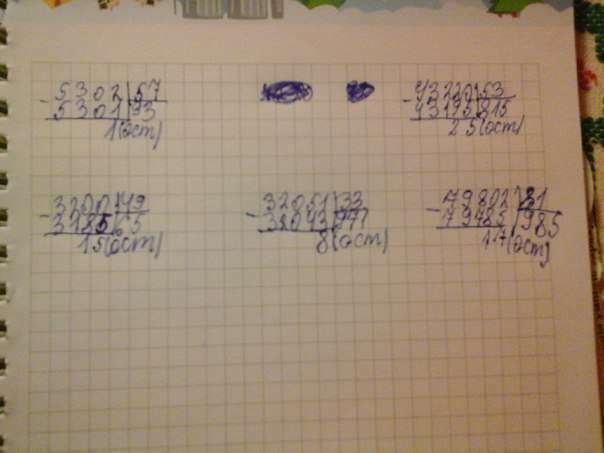 5302 57 43220 53
- 5301 93 - 43195 815
1(ост) 25(ост)
3200 49 32051 33 79802 81
- 3185 65 - 32043 971 - 79785 985
15(ост) 8(ост) 17(ост)